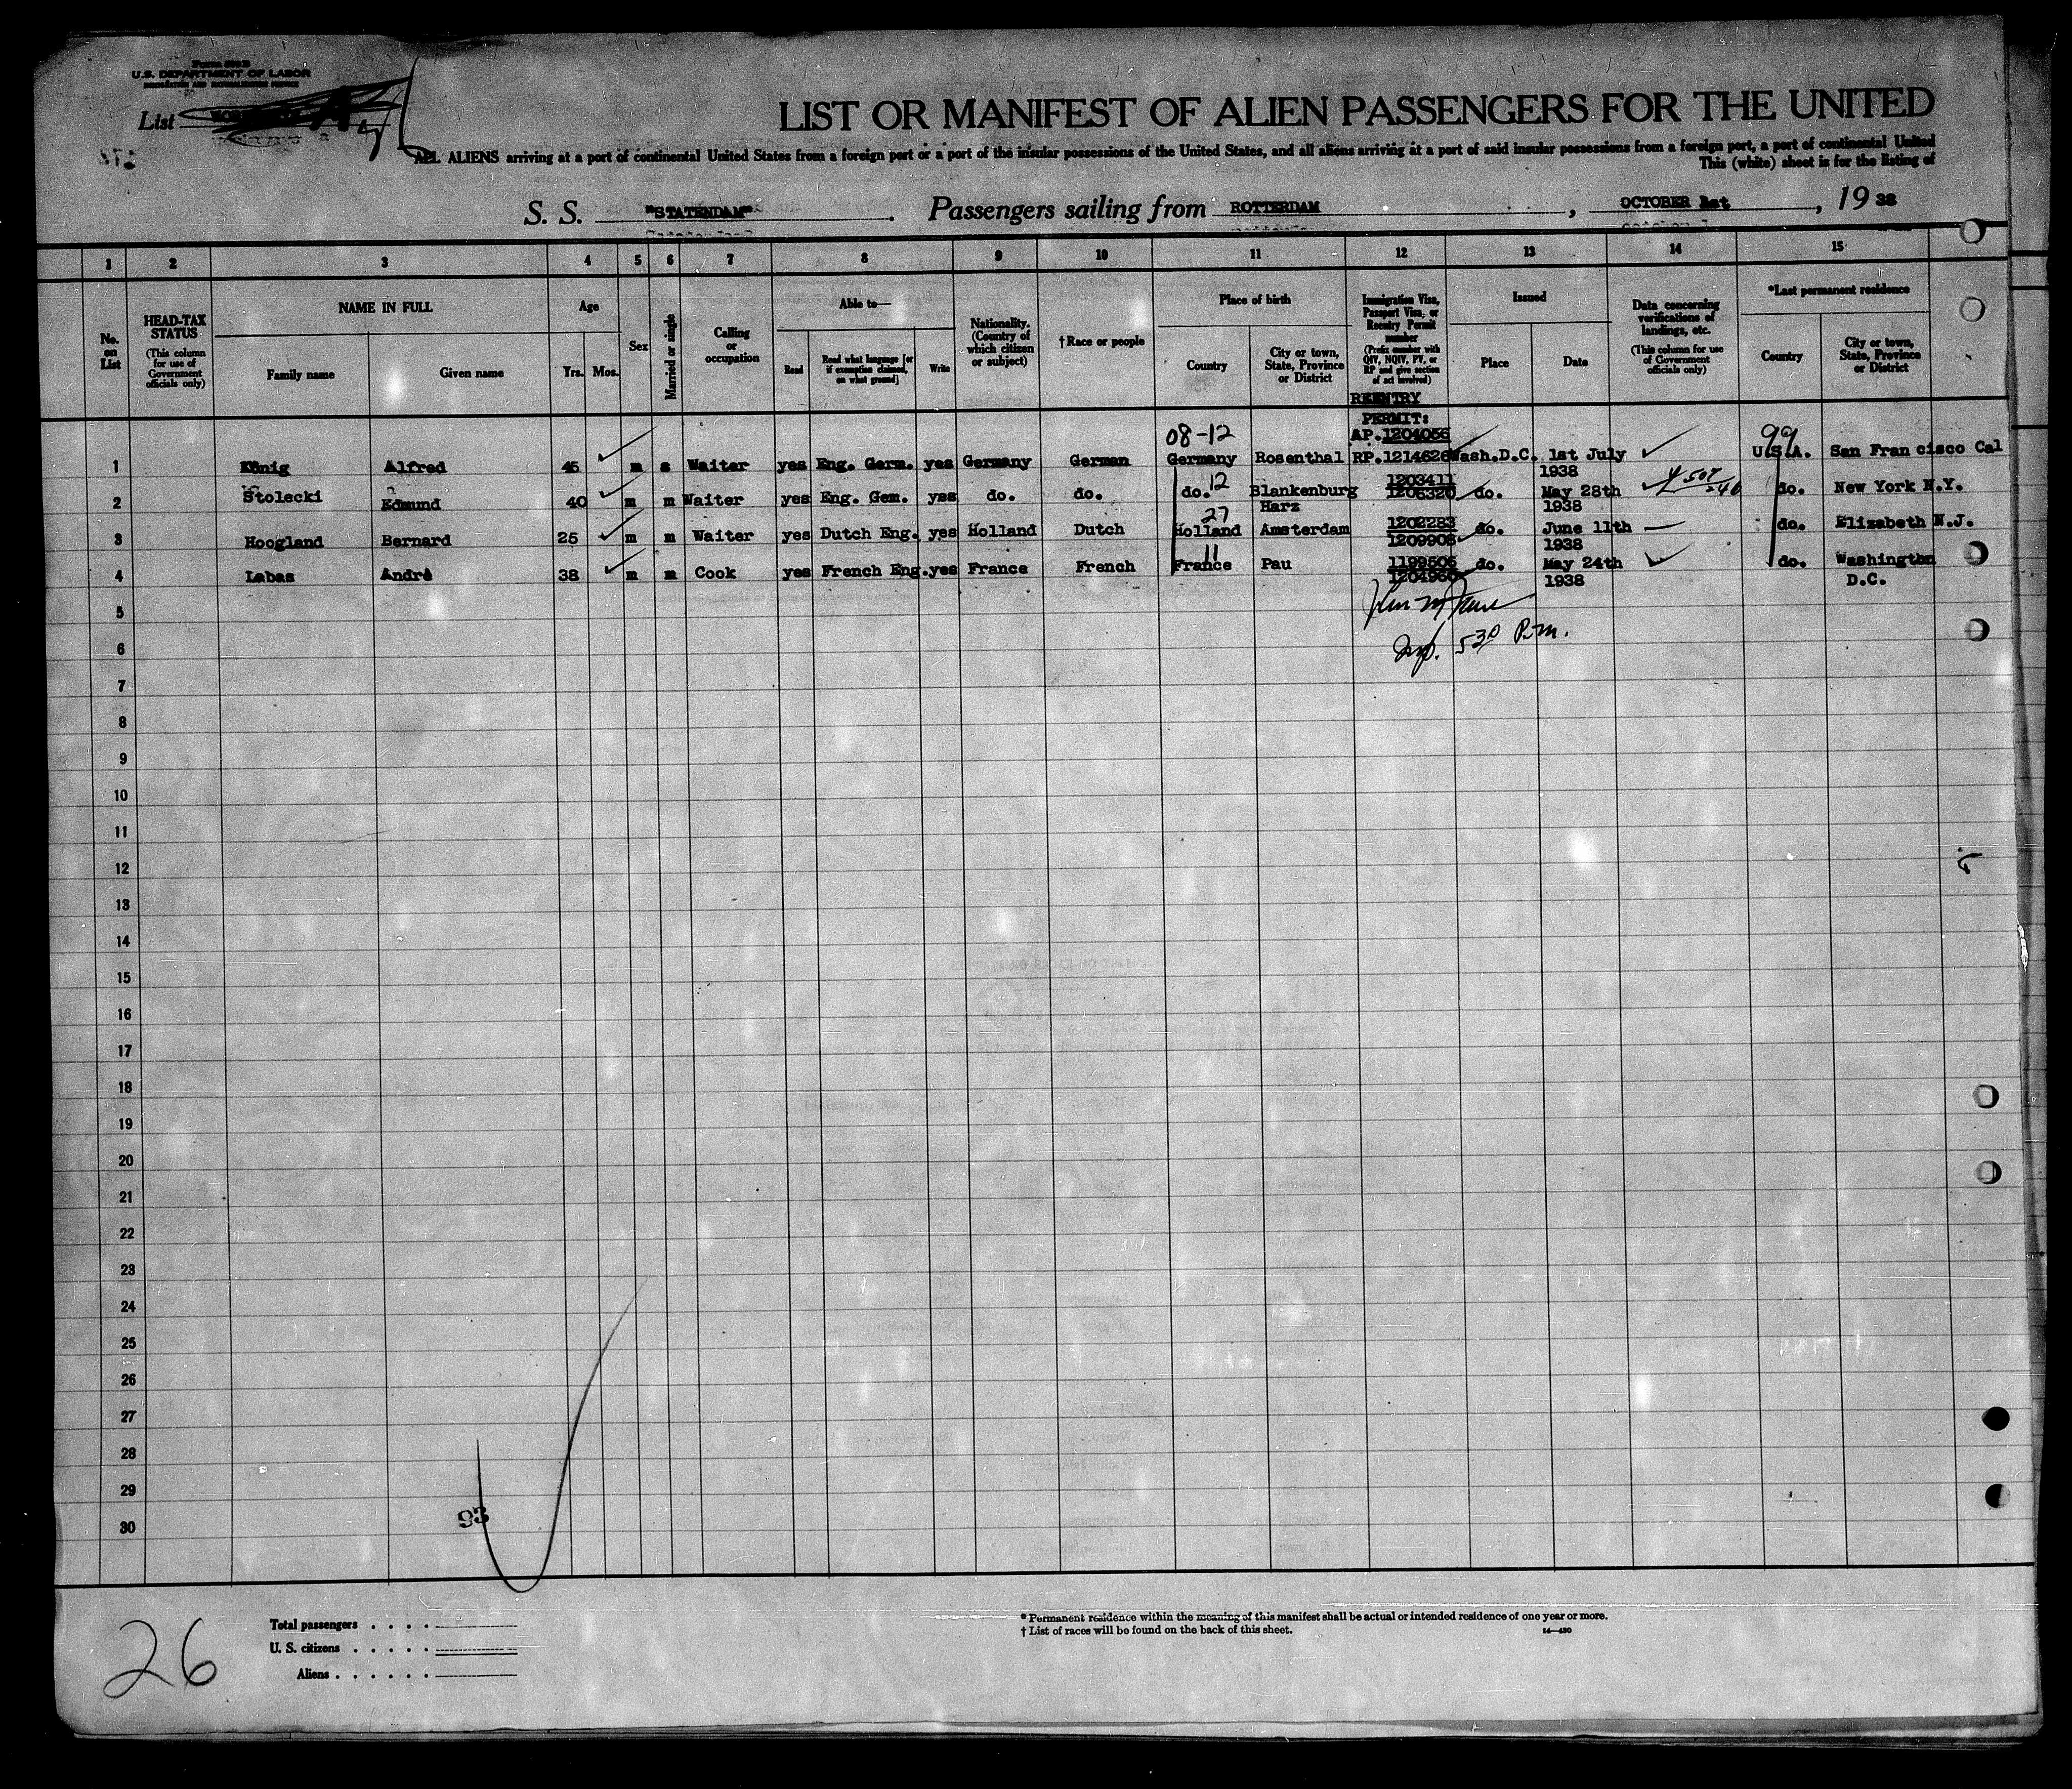 Form 500 B
U.S. DEPARTMENT OF LABOR
IMMIGRATION AND NATURALIZATION SERVICE
List
LIST OR MANIFEST OF ALIEN PASSENGERS FOR THE UNITED
ALL ALIENS arriving at a port of continental United States from a foreign port or a port of the insular possessions of the United States, and all aliens arriving at a port of said insular possessions from a foreign port, a port of continental United
This (white) sheet is for the listing of
S. S. "STATENDAM". Passengers sailing from ROTTERDAM, OCTOBER 1st, 19 38
1 2 3 4 5 6 7 8 9 10 11 12 13 14 15
No. on List
HEAD-TAX STATUS (This column for use of Government officials only)
NAME IN FULL
Family name Given name
Age
Yrs. Mos.
Sex
Married or single
Calling or occupation
Able to—
Read Read what language [or if exemption claimed, on what ground] Write
Nationality. (Country of which citizen or subject)
†Race or people
Place of birth
Country City or town, State, Province or District
Immigration Visa, Passport Visa, or Reentry Permit number (Prefix number with QIV, NQIV, PV, or RP and give section of act involved)
Issued
Place Date
Data concerning verifications of landings, etc. (This column for use of Government officials only)
*Last permanent residence
Country City or town, State, Province or District
REENTRY
PERMIT:
08-12 AP.1204056 99
1 König Alfred 45 m s Waiter yes Eng. Germ. yes Germany German Germany Rosenthal RP.1214626 Wash.D.C. 1st July 1938 U.S.A. San Francisco Cal
12 1203411
2 Stolecki Edmund 40 m m Waiter yes Eng. Gem. yes do. do. do. Blankenburg Harz 1206320 do. May 28th 1938 do. New York N.Y.
27 1202283
3 Hoogland Bernard 25 m m Waiter yes Dutch Eng. yes Holland Dutch Holland Amsterdam 1209906 do. June 11th 1938 do. Elizabeth N.J.
11 1199506
4 Labas André 38 m m Cook yes French Eng. yes France French France Pau 1204960 do. May 24th 1938 do. Washington D.C.
5
6 Insp. 5 30 P.m.
7
8
9
10
11
12
13
14
15
16
17
18
19
20
21
22
23
24
25
26
27
28
29
93
30
26
Total passengers . . . .
U. S. citizens . . . . .
Aliens . . . . . .
* Permanent residence within the meaning of this manifest shall be actual or intended residence of one year or more.
† List of races will be found on the back of this sheet. 14—480